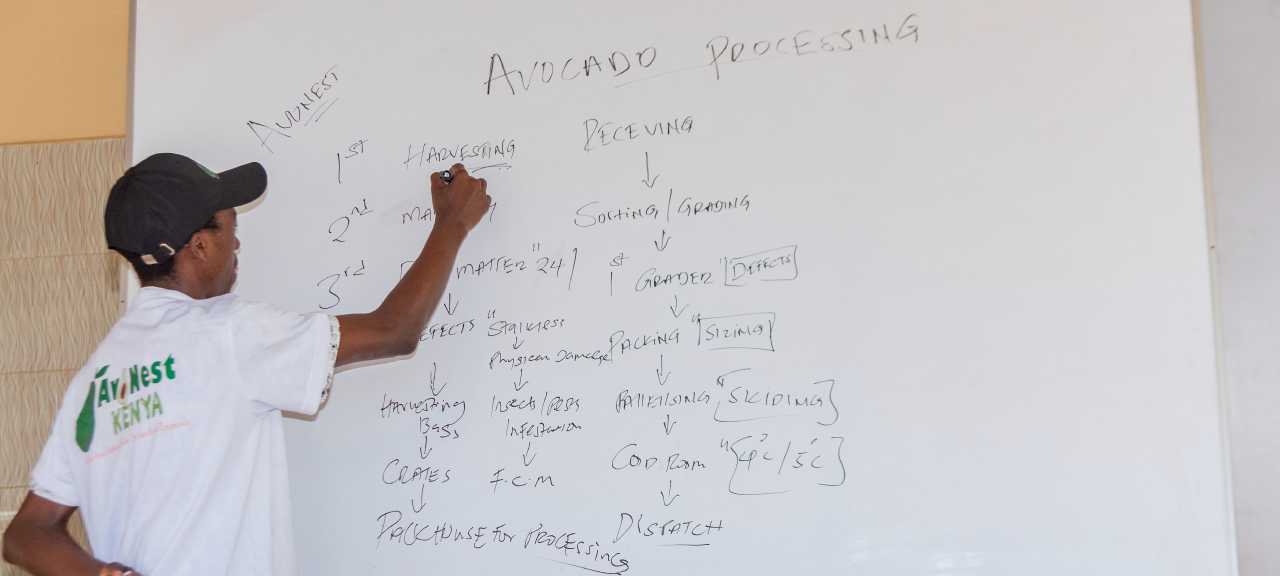 AVOCADO PROCESSING
AVONEST
1st HARVESTING
2nd
3rd MATTER "24
DEFECTS "Stalkless
Physical Damage
HARVESTING BAGS
Insects/Pests Infestation
CRATES
F.C.M
PACKHOUSE FOR PROCESSING
RECEVING
SORTING/GRADING
1st GRADER "DEFECTS
PACKING "SIZING
PALLETISING "SKIDING
COLD ROOM "4°C/5°C
DISPATCH
AvoNest
KENYA